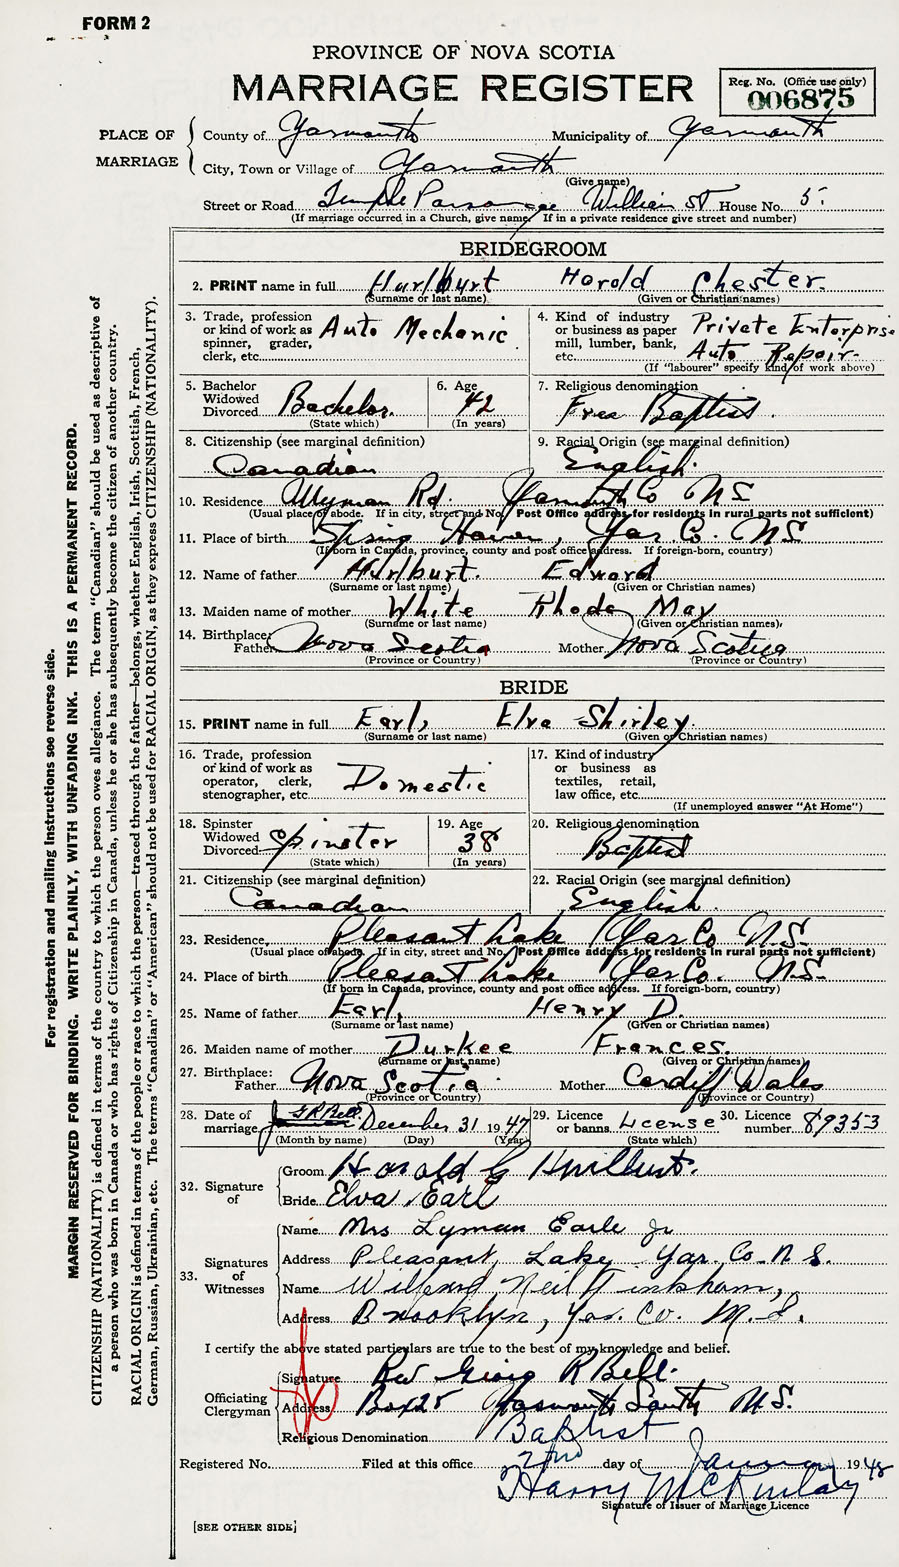 FORM 2
PROVINCE OF NOVA SCOTIA
MARRIAGE REGISTER
Reg. No. (Office use only)
006875
PLACE OF MARRIAGE
County of Yarmouth Municipality of Yarmouth
City, Town or Village of Yarmouth
(Give name)
Street or Road Temple Parsonage William St House No. 5.
(If marriage occurred in a Church, give name. If in a private residence give street and number)
BRIDEGROOM
2. PRINT name in full Hurlburt Harold Chester.
(Surname or last name) (Given or Christian names)
3. Trade, profession or kind of work as spinner, grader, clerk, etc. Auto Mechanic
4. Kind of industry or business as paper mill, lumber, bank, etc. Private Enterprise Auto Repair.
(If "labourer" specify kind of work above)
5. Bachelor Widowed Divorced Bachelor.
(State which)
6. Age 42
(In years)
7. Religious denomination
Free Baptist.
8. Citizenship (see marginal definition)
Canadian
9. Racial Origin (see marginal definition)
English.
10. Residence Wyman Rd. Yarmouth Co NS
(Usual place of abode. If in city, street and No. Post Office address for residents in rural parts not sufficient)
11. Place of birth Spring Haven, Yar Co. NS
(If born in Canada, province, county and post office address. If foreign-born, country)
12. Name of father Hurlburt. Edward
(Surname or last name) (Given or Christian names)
13. Maiden name of mother White Rhoda May
(Surname or last name) (Given or Christian names)
14. Birthplace: Father Nova Scotia Mother Nova Scotia
(Province or Country) (Province or Country)
BRIDE
15. PRINT name in full Earl, Elva Shirley.
(Surname or last name) (Given or Christian names)
16. Trade, profession or kind of work as operator, clerk, stenographer, etc. Domestic
17. Kind of industry or business as textiles, retail, law office, etc.
(If unemployed answer "At Home")
18. Spinster Widowed Divorced Spinster
(State which)
19. Age 38
(In years)
20. Religious denomination
Baptist
21. Citizenship (see marginal definition)
Canadian
22. Racial Origin (see marginal definition)
English.
23. Residence, Pleasant Lake Yar Co N.S.
(Usual place of abode. If in city, street and No. Post Office address for residents in rural parts not sufficient)
24. Place of birth Pleasant Lake Yar Co. N.S.
(If born in Canada, province, county and post office address. If foreign-born, country)
25. Name of father Earl, Henry D.
(Surname or last name) (Given or Christian names)
26. Maiden name of mother Durkee Frances.
(Surname or last name) (Given or Christian names)
27. Birthplace: Father Nova Scotia Mother Cardiff Wales
(Province or Country) (Province or Country)
28. Date of marriage G R Bell. December 31 1947
(Month by name) (Day) (Year)
29. Licence or banns License
(State which)
30. Licence number 89353
32. Signature of
Groom Harold C Hurlburt.
Bride Elva Earl
33. Signatures of Witnesses
Name Mrs Lyman Earle Jr
Address Pleasant Lake Yar. Co. N.S.
Name Neil
Address Brooklyn, Yar. Co. N.S.
I certify the above stated particulars are true to the best of my knowledge and belief.
Officiating Clergyman
Signature Rev George R Bell.
Address Box 25 Yarmouth South N.S.
Religious Denomination Baptist
Registered No. Filed at this office 2nd day of January 1948
Harry McKinlay
Signature of Issuer of Marriage Licence
[SEE OTHER SIDE]
For registration and mailing instructions see reverse side.
MARGIN RESERVED FOR BINDING. WRITE PLAINLY, WITH UNFADING INK. THIS IS A PERMANENT RECORD.
CITIZENSHIP (NATIONALITY) is defined in terms of the country to which the person owes allegiance. The term "Canadian" should be used as descriptive of
a person who was born in Canada or who has rights of Citizenship in Canada, unless he or she has subsequently become the citizen of another country.
RACIAL ORIGIN is defined in terms of the people or race to which the person—traced through the father—belongs, whether English, Irish, Scottish, French,
German, Russian, Ukrainian, etc. The terms "Canadian" or "American" should not be used for RACIAL ORIGIN, as they express CITIZENSHIP (NATIONALITY).